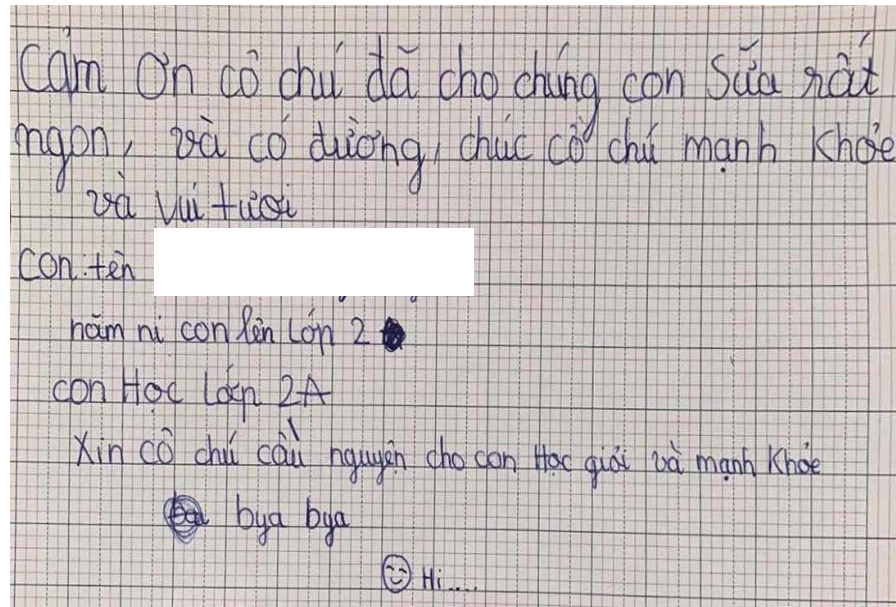 Cảm Ơn cô chú đã cho chúng con Sữa rất
ngon, và có đường, chúc cô chú mạnh Khỏe
và vui tươi
Con tên
năm ni con lên Lớp 2
con Học Lớp 2A
Xin cô chú cầu nguyện cho con Học giỏi và mạnh Khỏe
bya bya
Hi....